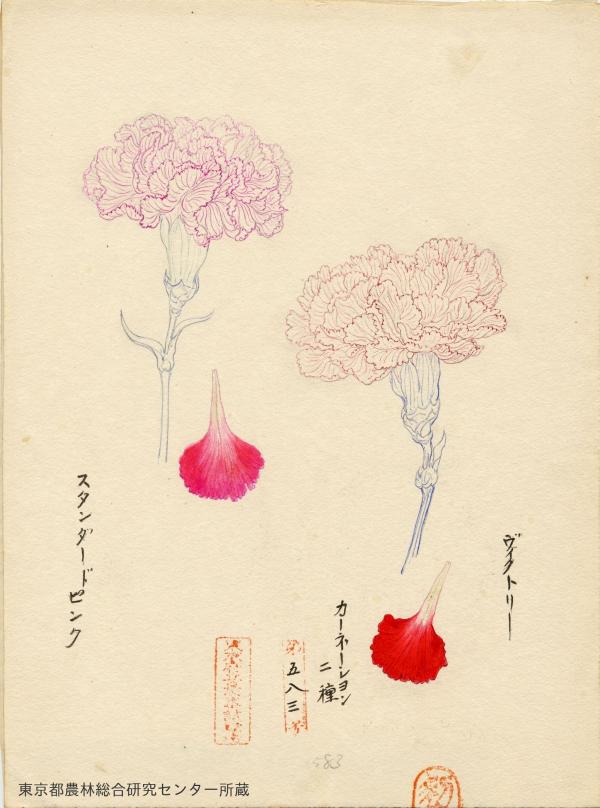 ヴィクトリー
カーネーション
二種
第五八三号
スタンダードピンク
583
東京都農林総合研究センター所蔵